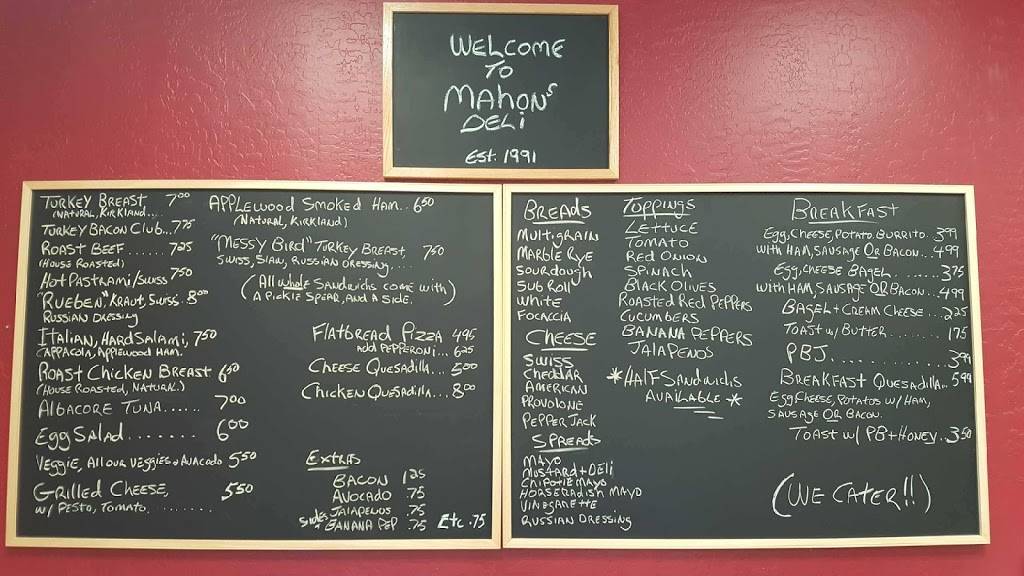 WELCOME
TO
MAHONS
DELI
Est. 1991
TURKEY BREAST 7.00
(NATURAL, KIRKLAND...
TURKEY BACON CLUB...7.75
ROAST BEEF....... 7.25
(HOUSE ROASTED)
HOT PASTRAMI/SWISS 7.50
"RUEBEN" KRAUT, SWISS. 8.00
RUSSIAN DRESSING
ITALIAN, HARD SALAMI, 7.50
CAPPACOLA, APPLEWOOD HAM.
ROAST CHICKEN BREAST 6.50
(HOUSE ROASTED, NATURAL.)
ALBACORE TUNA...... 7.00
EGG SALAD........ 6.00
VEGGIE, ALL OUR VEGGIES & AVACADO 5.50
GRILLED CHEESE, 5.50
W/ PESTO, TOMATO.......
APPLEWOOD SMOKED HAM.. 6.50
(NATURAL, KIRKLAND)
"MESSY BIRD" TURKEY BREAST, 7.50
SWISS, SLAW, RUSSIAN DRESSING....
(ALL whole SANDWICHS COME WITH
A PICKLE SPEAR, AND A SIDE.)
FLATBREAD PIZZA 4.95
ADD PEPPERONI... 6.25
CHEESE QUESADILLA... 5.00
CHICKEN QUESADILLA... 8.00
EXTRES
BACON 1.25
AVOCADO .75
JALAPENOS .75
BANANA PEP .75 Etc .75
BREADS
MULTIGRAIN
MARBLE RYE
SOURDOUGH
SUB ROLL
WHITE
FOCACCIA
CHEESE
SWISS
CHEDDAR
AMERICAN
PROVOLONE
PEPPER JACK
SPREADS
MAYO
MUSTARD + DELI
CHIPOTLE MAYO
HORSERADISH MAYO
VINEGARETTE
RUSSIAN DRESSING
TOPPINGS
LETTUCE
TOMATO
RED ONION
SPINACH
BLACK OLIVES
ROASTED RED PEPPERS
CUCUMBERS
BANANA PEPPERS
JALAPENOS
*HALF SANDWICHS
AVAILABLE *
BREAKFAST
EGG, CHEESE, POTATO BURRITO. 3.99
WITH HAM, SAUSAGE OR BACON... 4.99
EGG, CHEESE BAGEL........ 3.75
WITH HAM, SAUSAGE OR BACON... 4.99
BAGEL + CREAM CHEESE... 2.25
TOAST W/ BUTTER........ 1.75
PBJ.............. 3.99
BREAKFAST QUESADILLA.. 5.99
EGG CHEESE, POTATOS W/ HAM,
SAUSAGE OR BACON.
TOAST W/ PB + HONEY.. 3.50
(WE CATER!!)